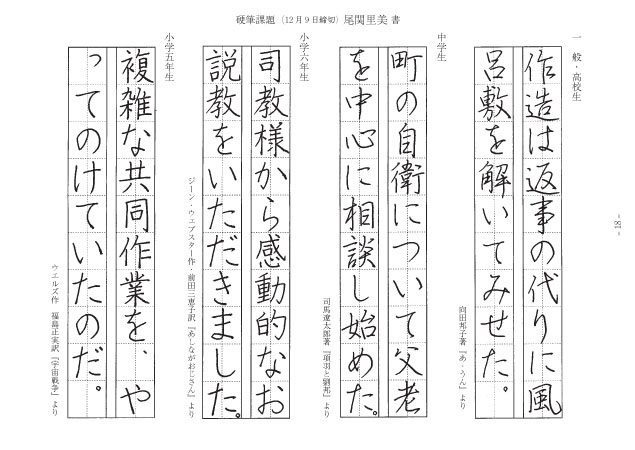 硬筆課題（12月9日締切）尾関里美 書
一般・高校生
作造は返事の代りに風
呂敷を解いてみせた。
向田邦子著『あ・うん』より
中学生
町の自衛について父老
を中心に相談し始めた。
司馬遼太郎著『項羽と劉邦』より
小学六年生
司教様から感動的なお
説教をいただきました。
ジーン・ウェブスター作 前田三恵子訳『あしながおじさん』より
小学五年生
複雑な共同作業を、や
ってのけていたのだ。
ウエルズ作 福島正実訳『宇宙戦争』より